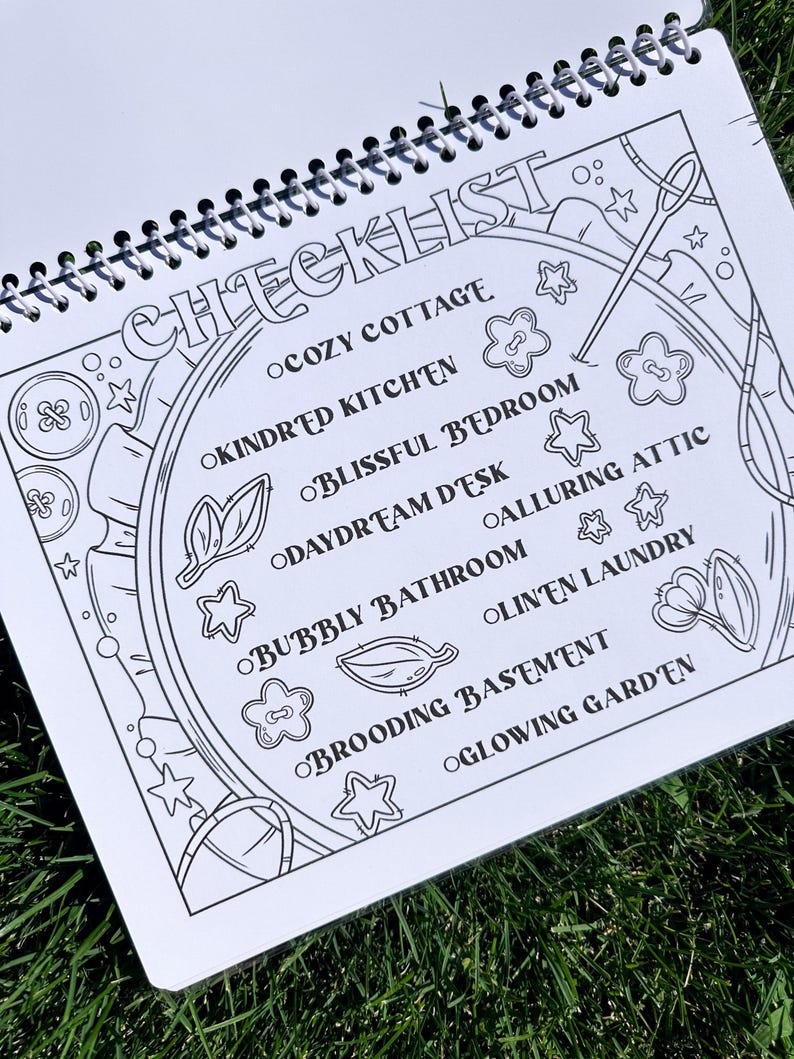 CHECKLIST
COZY COTTAGE
KINDRED KITCHEN
BLISSFUL BEDROOM
DAYDREAM DESK
ALLURING ATTIC
BUBBLY BATHROOM
LINEN LAUNDRY
BROODING BASEMENT
GLOWING GARDEN